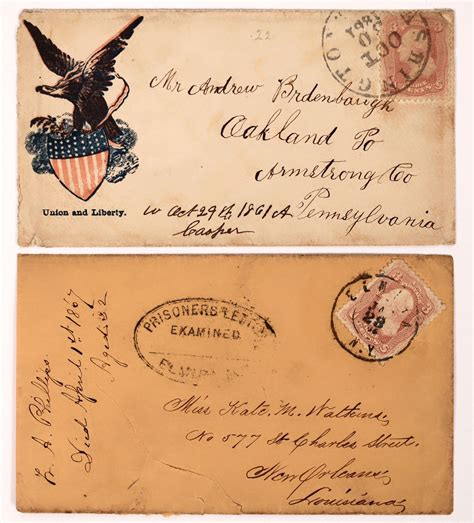 22
WASHINGTON
OCT
1861
Mr Andrew Brdenbaugk
Oakland Po
Armstrong Co
Pennsylvania
Union and Liberty.
w Oct 29th 1861 A
Casper
PRISONERS LETTER
EXAMINED
ELMIRA
ELMIRA
29
N.Y.
A. Phillips
Died April 1st 1867
Aged 22
Miss Kate. M. Watkins.
No 577 St Charles Street.
New Orleans.
Louisiana